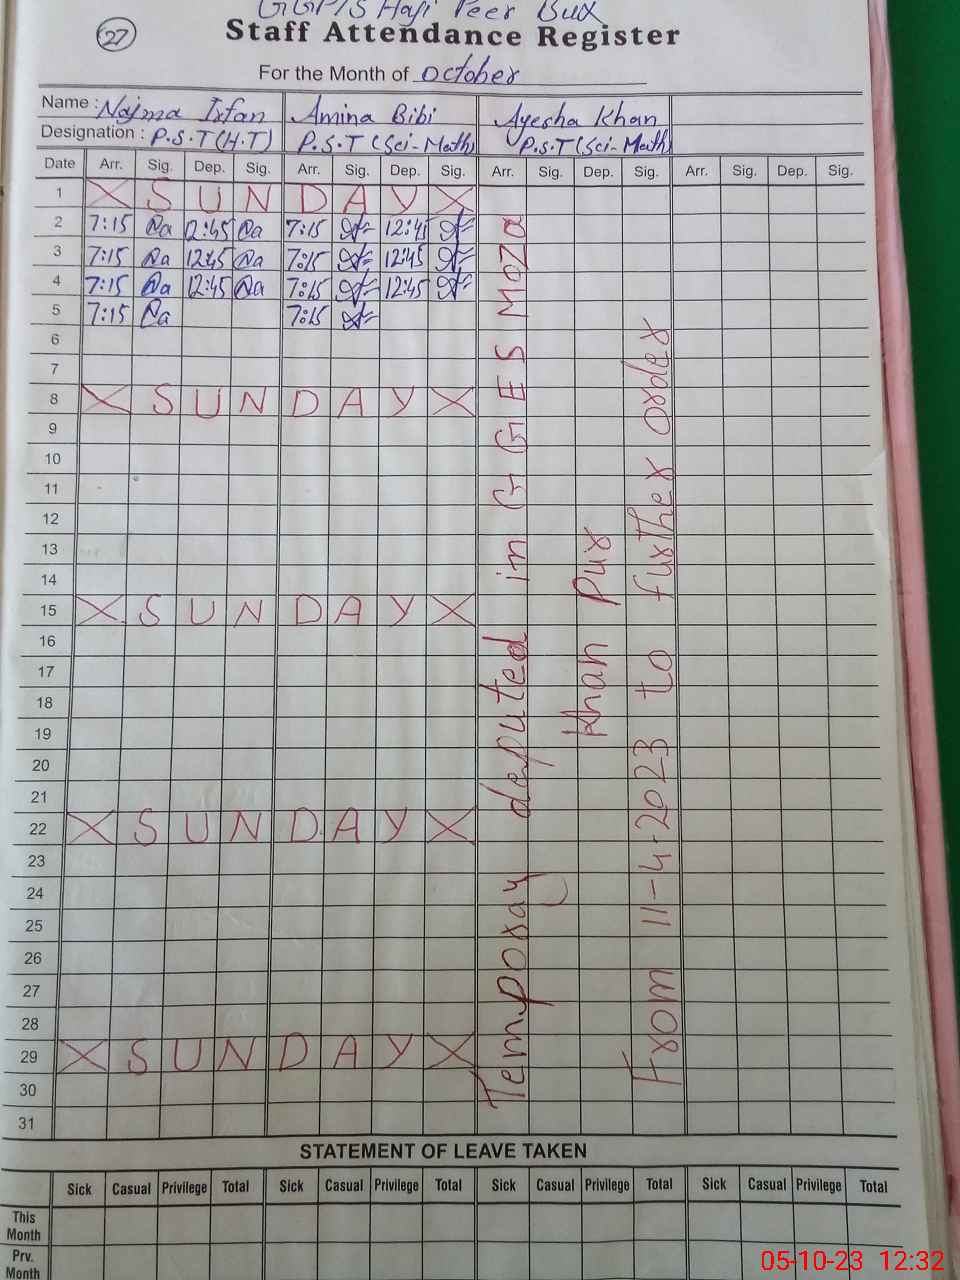 GGP/S Haji Peer Bux
27
Staff Attendance Register
For the Month of October
Name : Najma Irfan Amina Bibi Ayesha Khan
Designation : P.S.T (H.T) P.S.T (Sci-Math) P.S.T (Sci-Math)
Date Arr. Sig. Dep. Sig. Arr. Sig. Dep. Sig. Arr. Sig. Dep. Sig. Arr. Sig. Dep. Sig.
1 X S U N D A Y X
2 7:15 12:45 7:15 12:45
3 7:15 12:45 7:15 12:45
4 7:15 12:45 7:15 12:45
5 7:15 7:15
6
7
8 X S U N D A Y X
9
10
11
12
13
14
15 X S U N D A Y X
16
17
18
19
20
21
22 X S U N D A Y X
23
24
25
26
27
28
29 X S U N D A Y X
30
31
Temporay deputed in G G E S Moza
Khan Pur
From 11-4-2023 to further order
STATEMENT OF LEAVE TAKEN
Sick Casual Privilege Total Sick Casual Privilege Total Sick Casual Privilege Total Sick Casual Privilege Total
This Month
Prv. Month
05-10-23 12:32